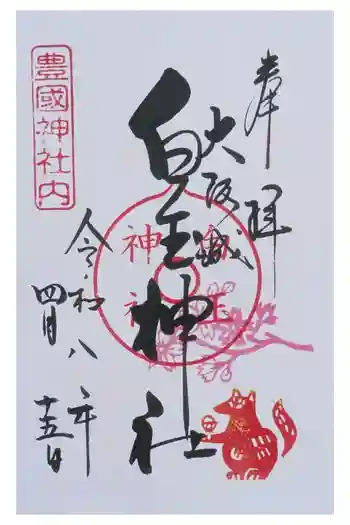 奉拝
大阪城
白玉神社
豊國神社内
白玉
神社
令和八年
四月十五日